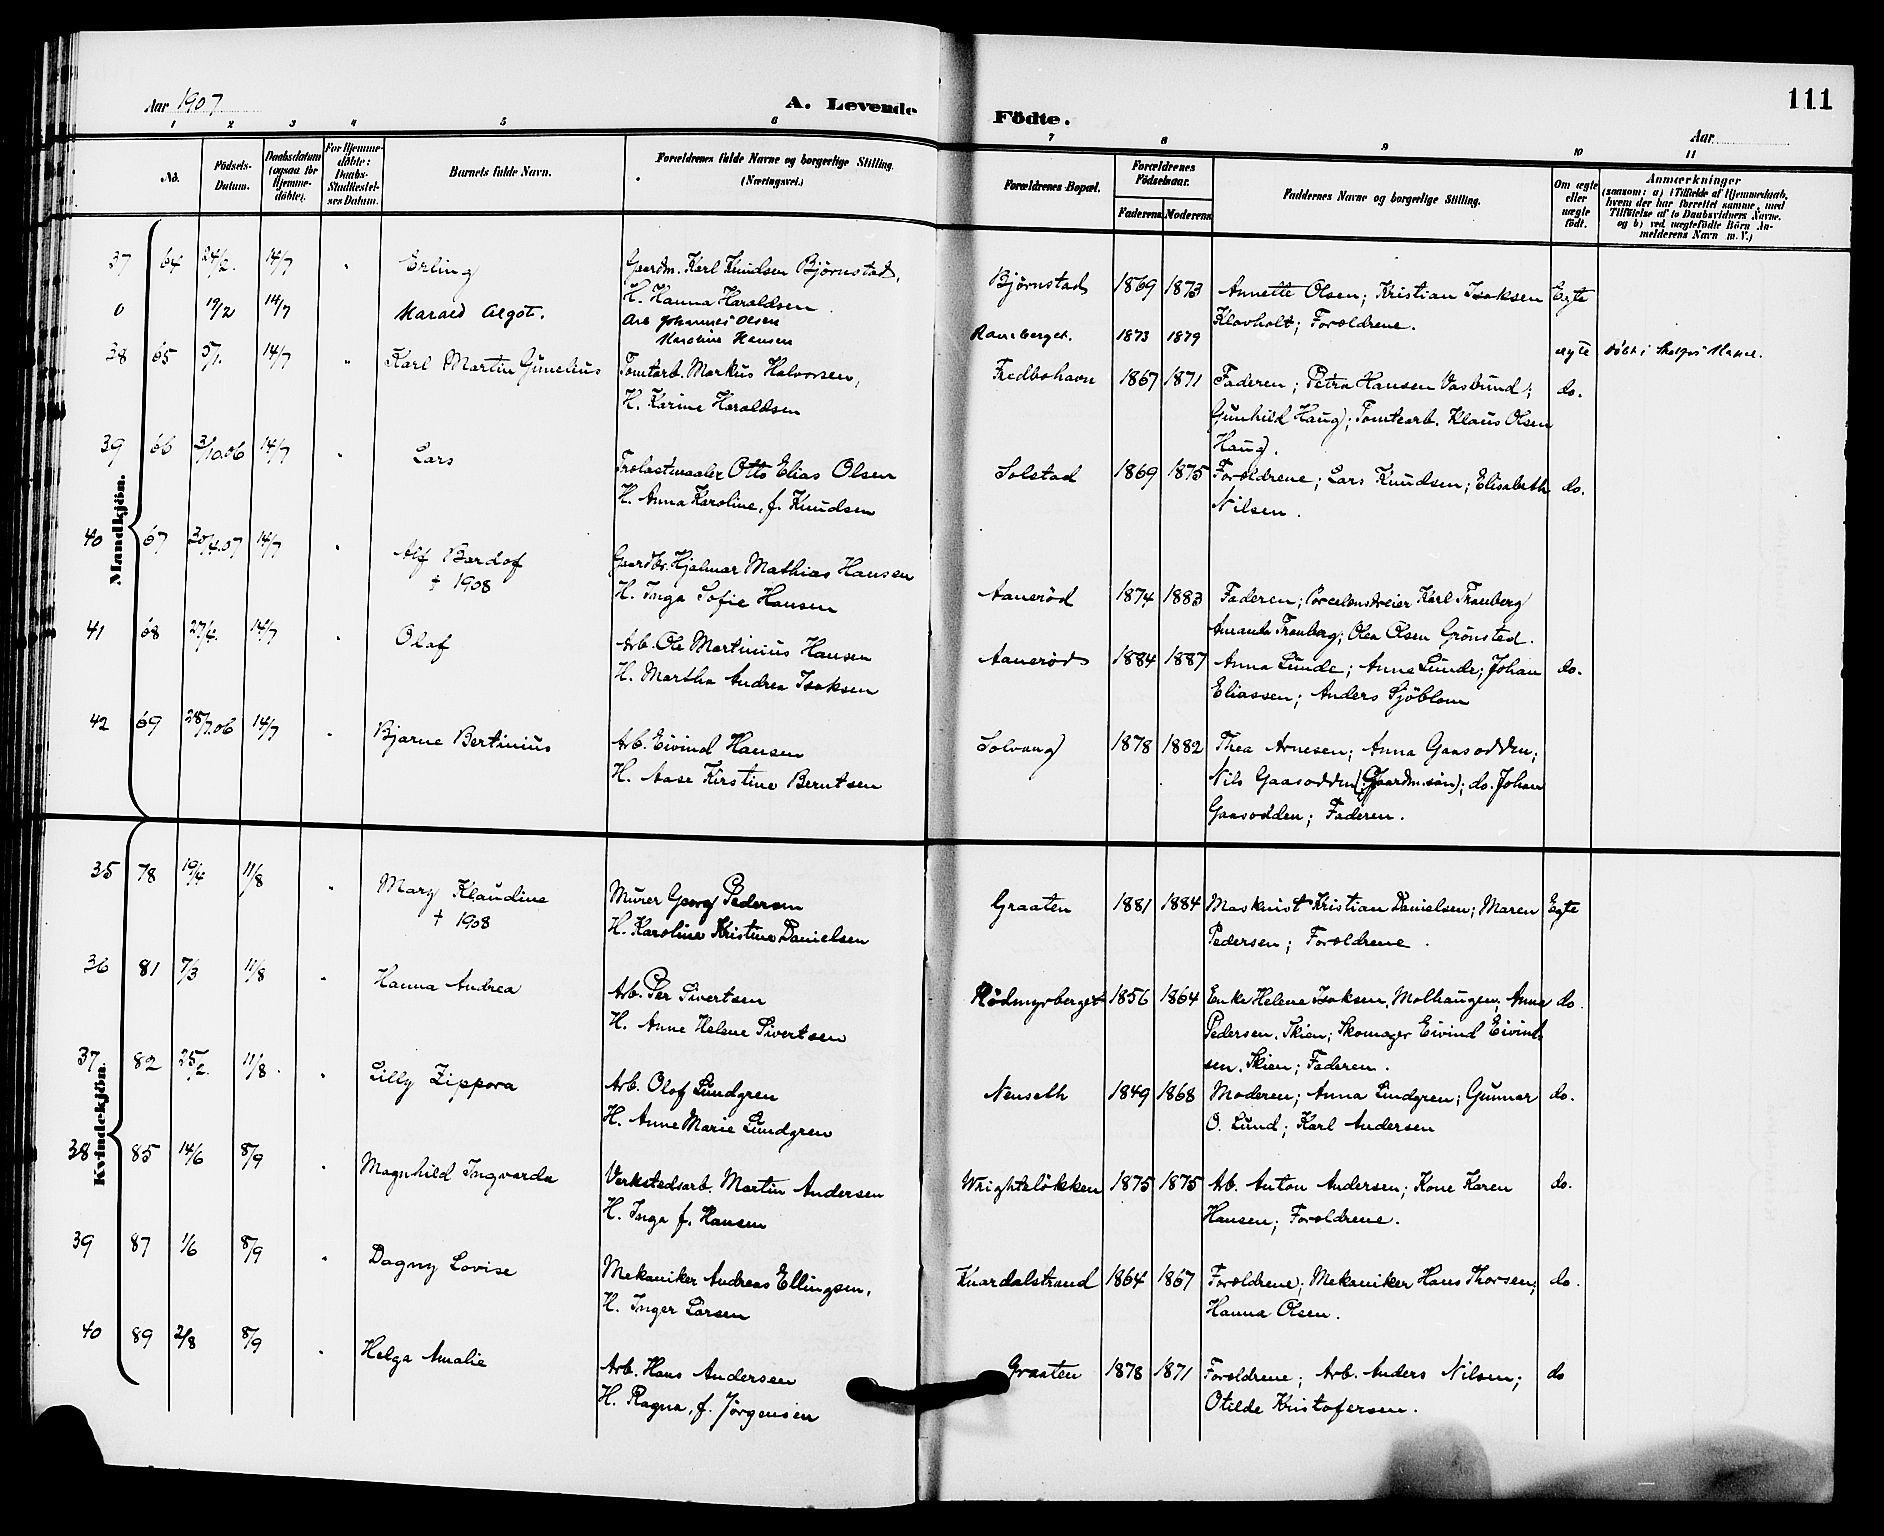 Aar 1907
A. Levende Födte.
111
Aar
1 2 3 4 5 6 7 8 9 10 11
No.
Födsels-Datum.
Daabsdatum (ogsaa for Hjemme-döbte).
For Hjemme-döbte: Daabs-Stadfæstel-ses Datum.
Barnets fulde Navn.
Forældrenes fulde Navne og borgerlige Stilling. (Næringsvei.)
Forældrenes Bopæl.
Forældrenes Födselsaar.
Faderens Moderens
Faddernes Navne og borgerlige Stilling.
Om ægte eller uægte født.
Anmærkninger
(saasom: a) i Tilfælde af Hjemmedaab,
hvem der har forrettet samme, med
Tilføielse af to Daabsvidners Navne.
og b) ved uægtefödte Börn An-
melderens Navn m. V.)
Mandkjön.
37 64 24/2. 14/7 " Erling Gaardm. Karl Knudsen Björnstad, Bjørnstad 1869 1873 Annette Olsen; Kristian Isaksen Egte
H. Hanna Haraldsen. Klovholt; Forældrene.
0 19/2 14/7 Harald Algot. Arb Johannes Olsen Ravnberget. 1873 1879 ægte
Karoline Hansen
38 65 5/1. 14/7 " Karl Martin Gunelius Tomtarb. Markus Halvorsen, Fredbohavn 1867 1871 Faderen; Petra Hansen Vasbund; do.
H. Karine Haraldsen Gunhild Haug; Tomtearb. Klaus Olsen
Haug.
39 66 3/10.06 14/7 " Lars Trælastmaaler Otto Elias Olsen Solstad 1869 1875 Forældrene; Lars Knudsen; Elisabeth do.
H. Anna Karoline, f. Knudsen Nilsen.
40 67 30/4.07 14/7 " Alf Bardof Gaardbr. Hjalmar Mathias Hansen Aanerød 1874 1883 Faderen; Porcelænsdreier Karl Tranberg
† 1908 H. Inga Sofie Hansen Amanda Tranberg; Olea Olsen Grönstad.
41 68 27/4. 14/7 " Olaf Arb. Ole Martinius Hansen Aanerød 1884 1887 Anna Lunde; Anne Lunde; Johan do.
H. Martha Andrea Isaksen Eliassen; Anders Sjöblom
42 69 28/7.06 14/7 " Bjarne Bertinius Arb. Eivind Hansen Solvang 1878 1882 Thea Arnesen; Anna Gaasodden;
H. Aase Kirstine Berntsen Nils Gaasodden (Gaardm.søn); do. Johan
Gaasodden; Faderen.
Kvindekjön.
35 78 19/4 11/8 " Mary Klaudine Murer Georg Pedersen Graaten 1881 1884 Maskinist Kristian Danielsen; Maren Egte
† 1908 H. Karoline Kristine Danielsen Pedersen; Forældrene.
36 81 7/3 11/8 " Hanna Andrea Arb. Per Sivertsen Rödmyrberget 1856 1864 Enke Helene Isaksen, Molhaugen; Anne do.
H. Anne Helene Sivertsen Pedersen, Skien; Skomager Eivind Eivind
sen, Skien; Faderen.
37 82 25/2. 11/8. " Lilly Zippora Arb. Olof Lundgren Nenseth 1849 1868 Moderen; Anna Lindgren; Gunnar do.
H. Anne Marie Lundgren O. Lund; Karl Andersen
38 85 14/6 8/9 " Magnhild Ingvarda Verkstedsarb. Martin Andersen Wrightsløkken 1875 1875 Arb. Anton Andersen; Kone Karen do.
H. Inga f. Hansen Hansen; Forældrene.
39 87 1/6 8/9 " Dagny Lovise Mekaniker Andreas Ellingsen, Knardalstrand 1864 1867 Forældrene; Mekaniker Hans Thorsen; do.
H. Inger Larsen Hanna Olsen.
40 89 2/8 8/9 " Helga Amalie Arb. Hans Andersen Graaten 1878 1871 Forældrene; Arb. Anders Nilsen; do
H. Ragna, f. Jørgensen Otilde Kristofersen.